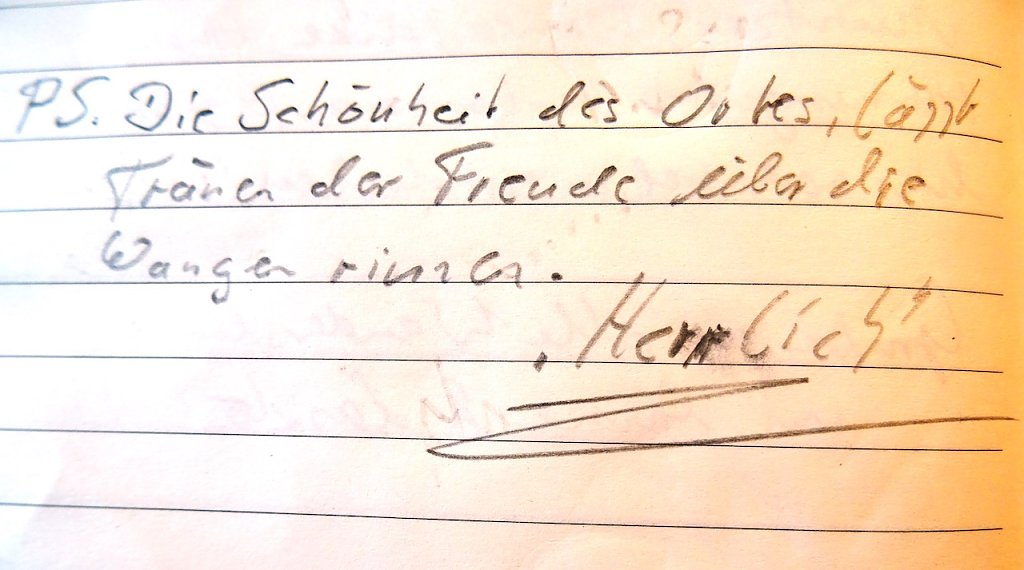 PS. Die Schönheit des Ortes, lässt
Tränen der Freude über die
Wangen rinnen.
"Herrlich"